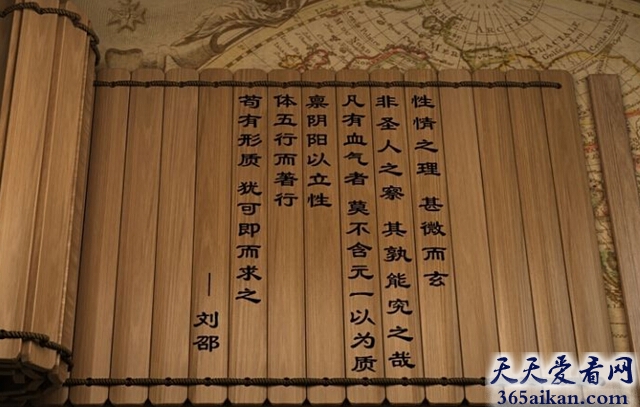 性情之理 甚微而玄
非圣人之察 其孰能究之哉
凡有血气者 莫不含元一以为质
禀阴阳以立性
体五行而著行
苟有形质 犹可即而求之
——刘邵
天天爱看网
365aikan.com